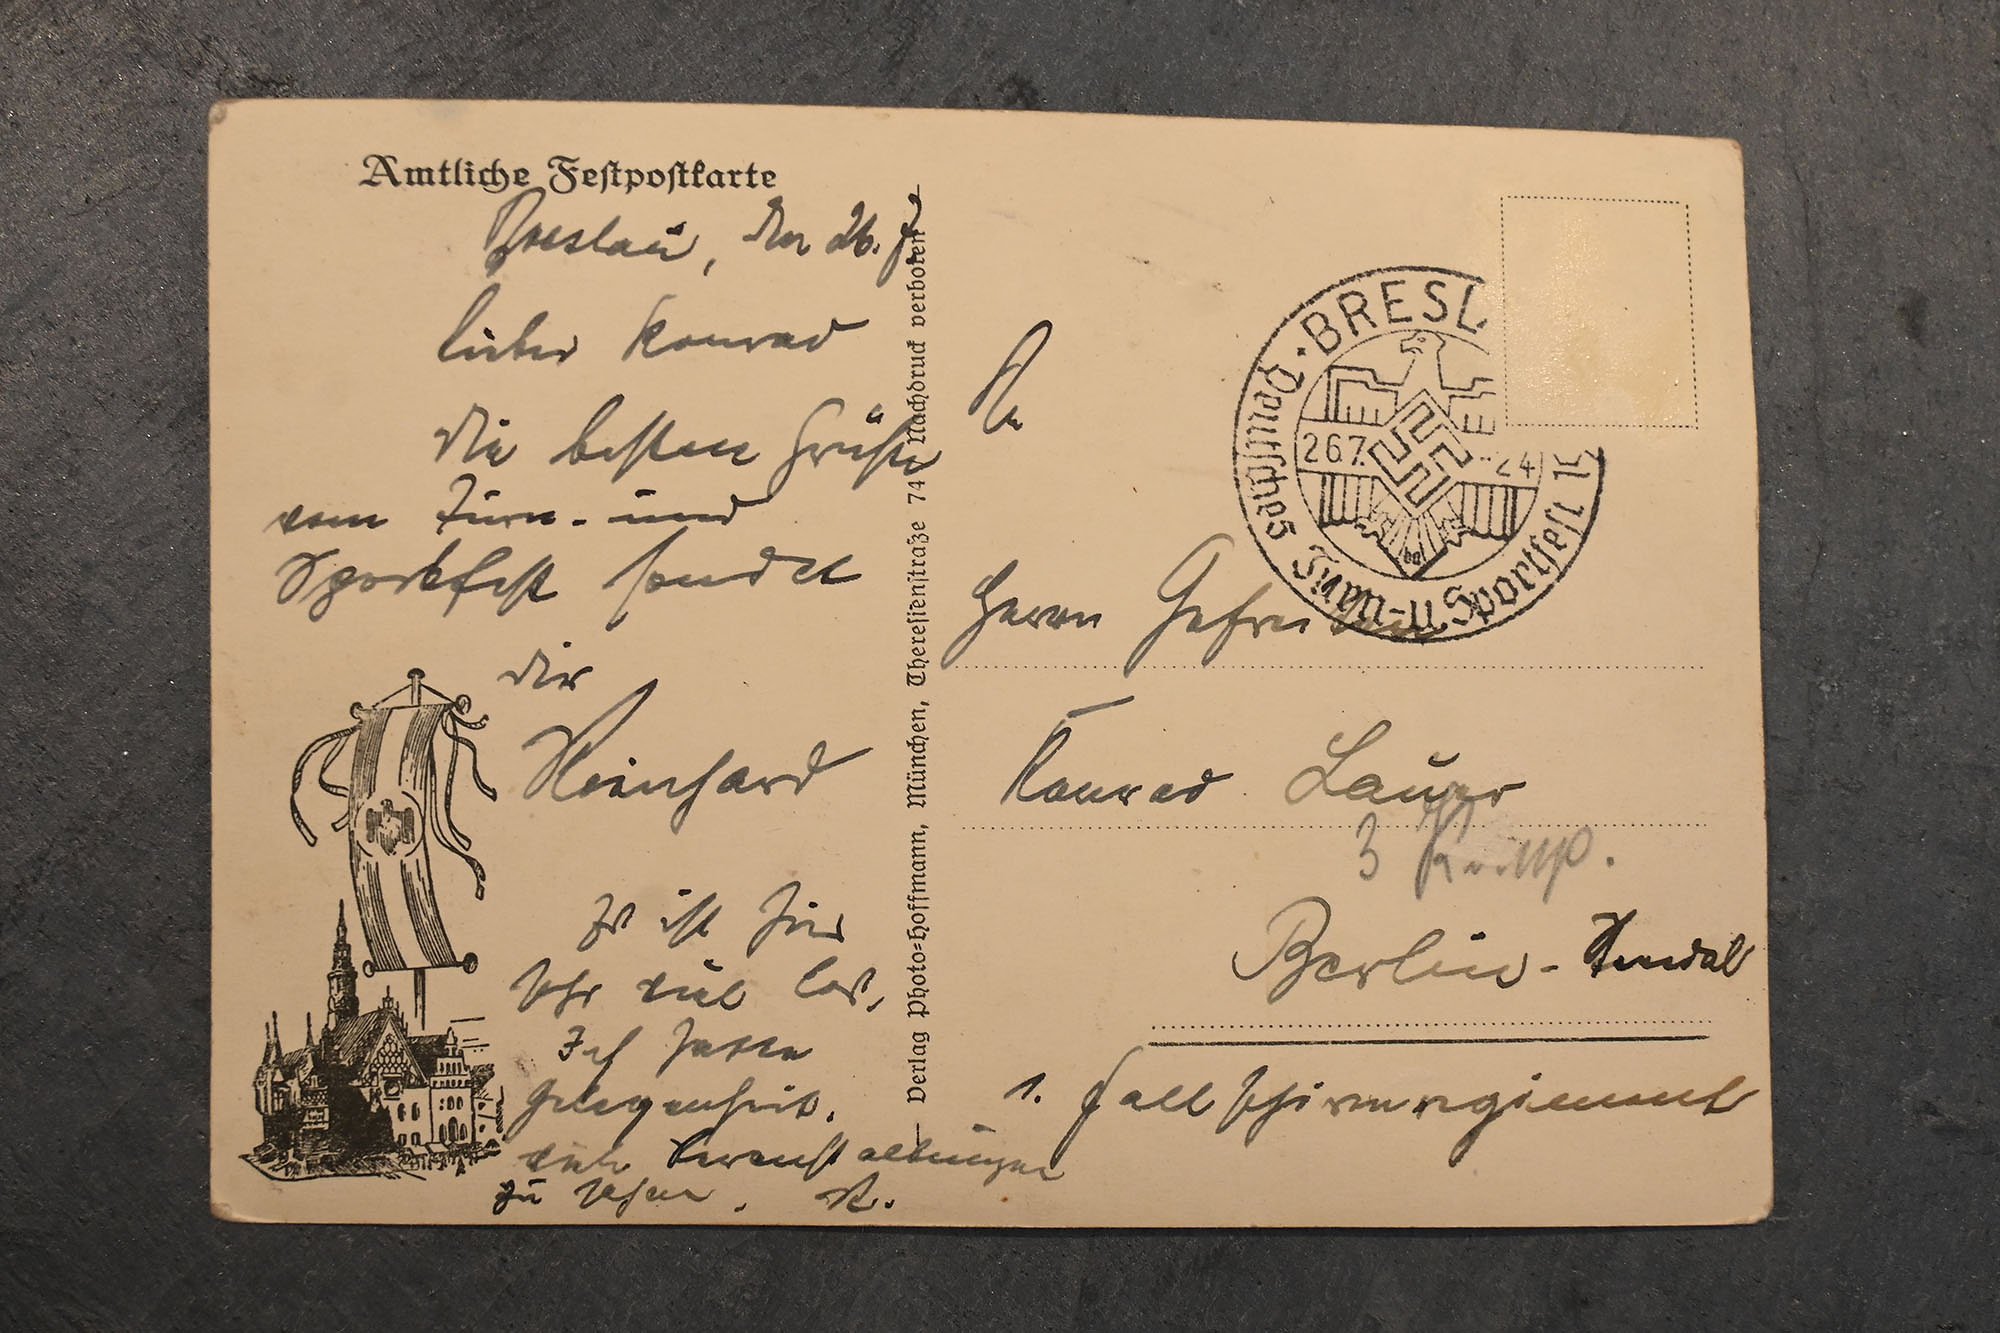 Amtliche Festpostkarte
Breslau, den 26. 7.
Lieber Konrad
Die besten Grüße
vom Turn- und
Sportfest sendet
dir
Reinhard
Es ist hier
sehr viel los,
Ich hatte
Gelegenheit,
viele Veranstaltungen
zu sehen. R.
Verlag Photo-Hoffmann, München, Theresienstraße 74 Nachdruck verboten
BRESL
Deutsches Turn- u. Sportfest 1
26.7. -24
An
Herrn Gefreiten
Konrad Lauer
3 Komp.
Berlin - Stendal
1. Fallschirmregiment